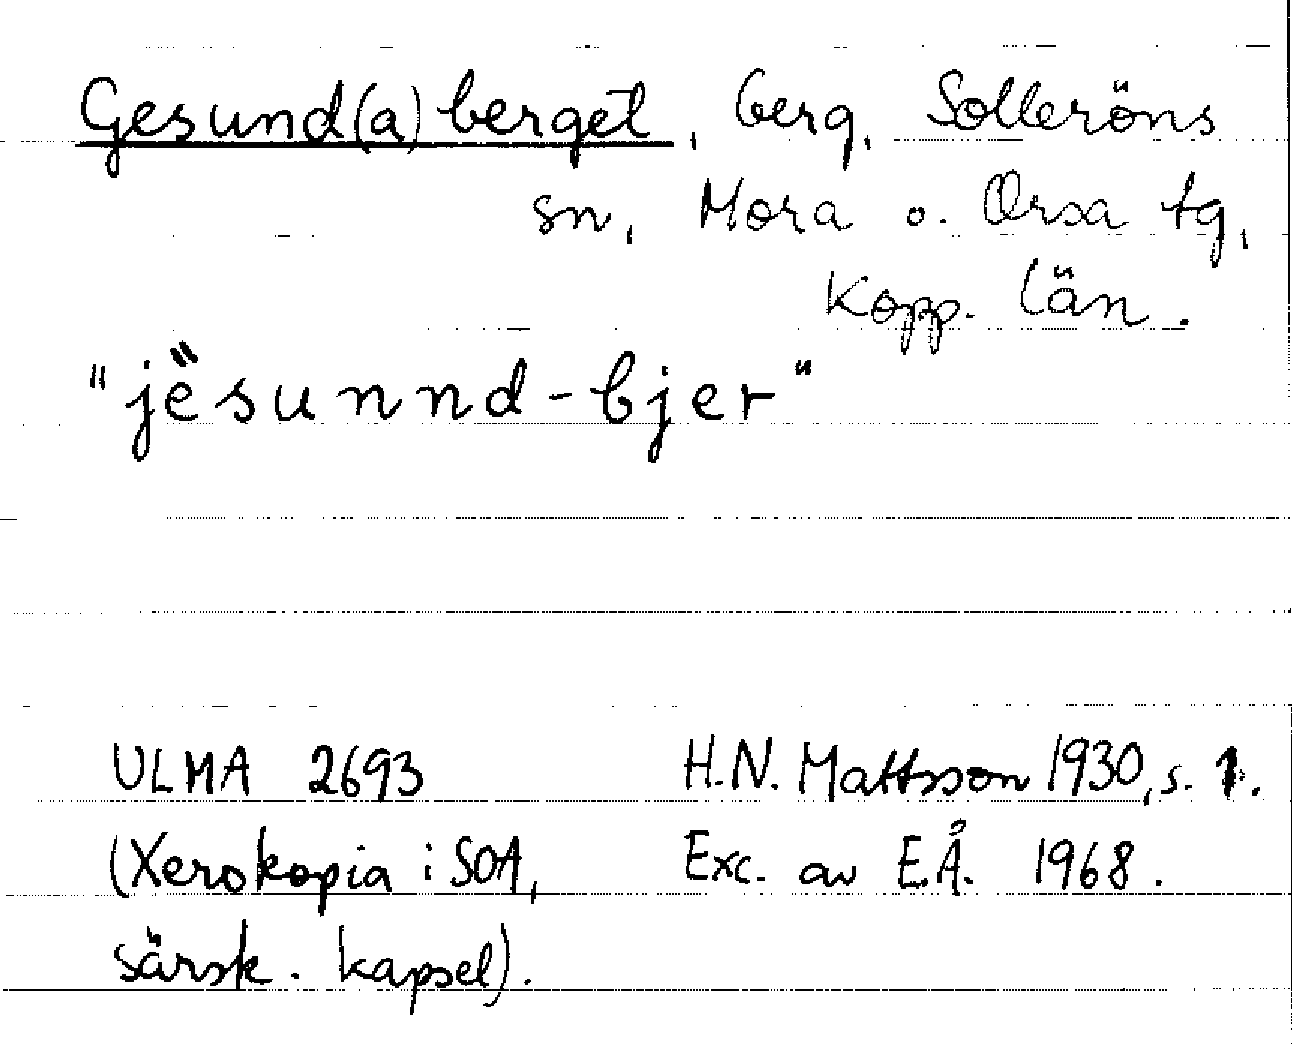 Gesund(a)berget, berg, Solleröns
sn, Mora o. Orsa tg,
Kopp. län.
"jësunnd-bjer"
ULMA 2693
(Xerokopia i SOA,
särsk. kapsel).
H.N. Mattsson 1930, s. 1.
Exc. av E.Å. 1968.